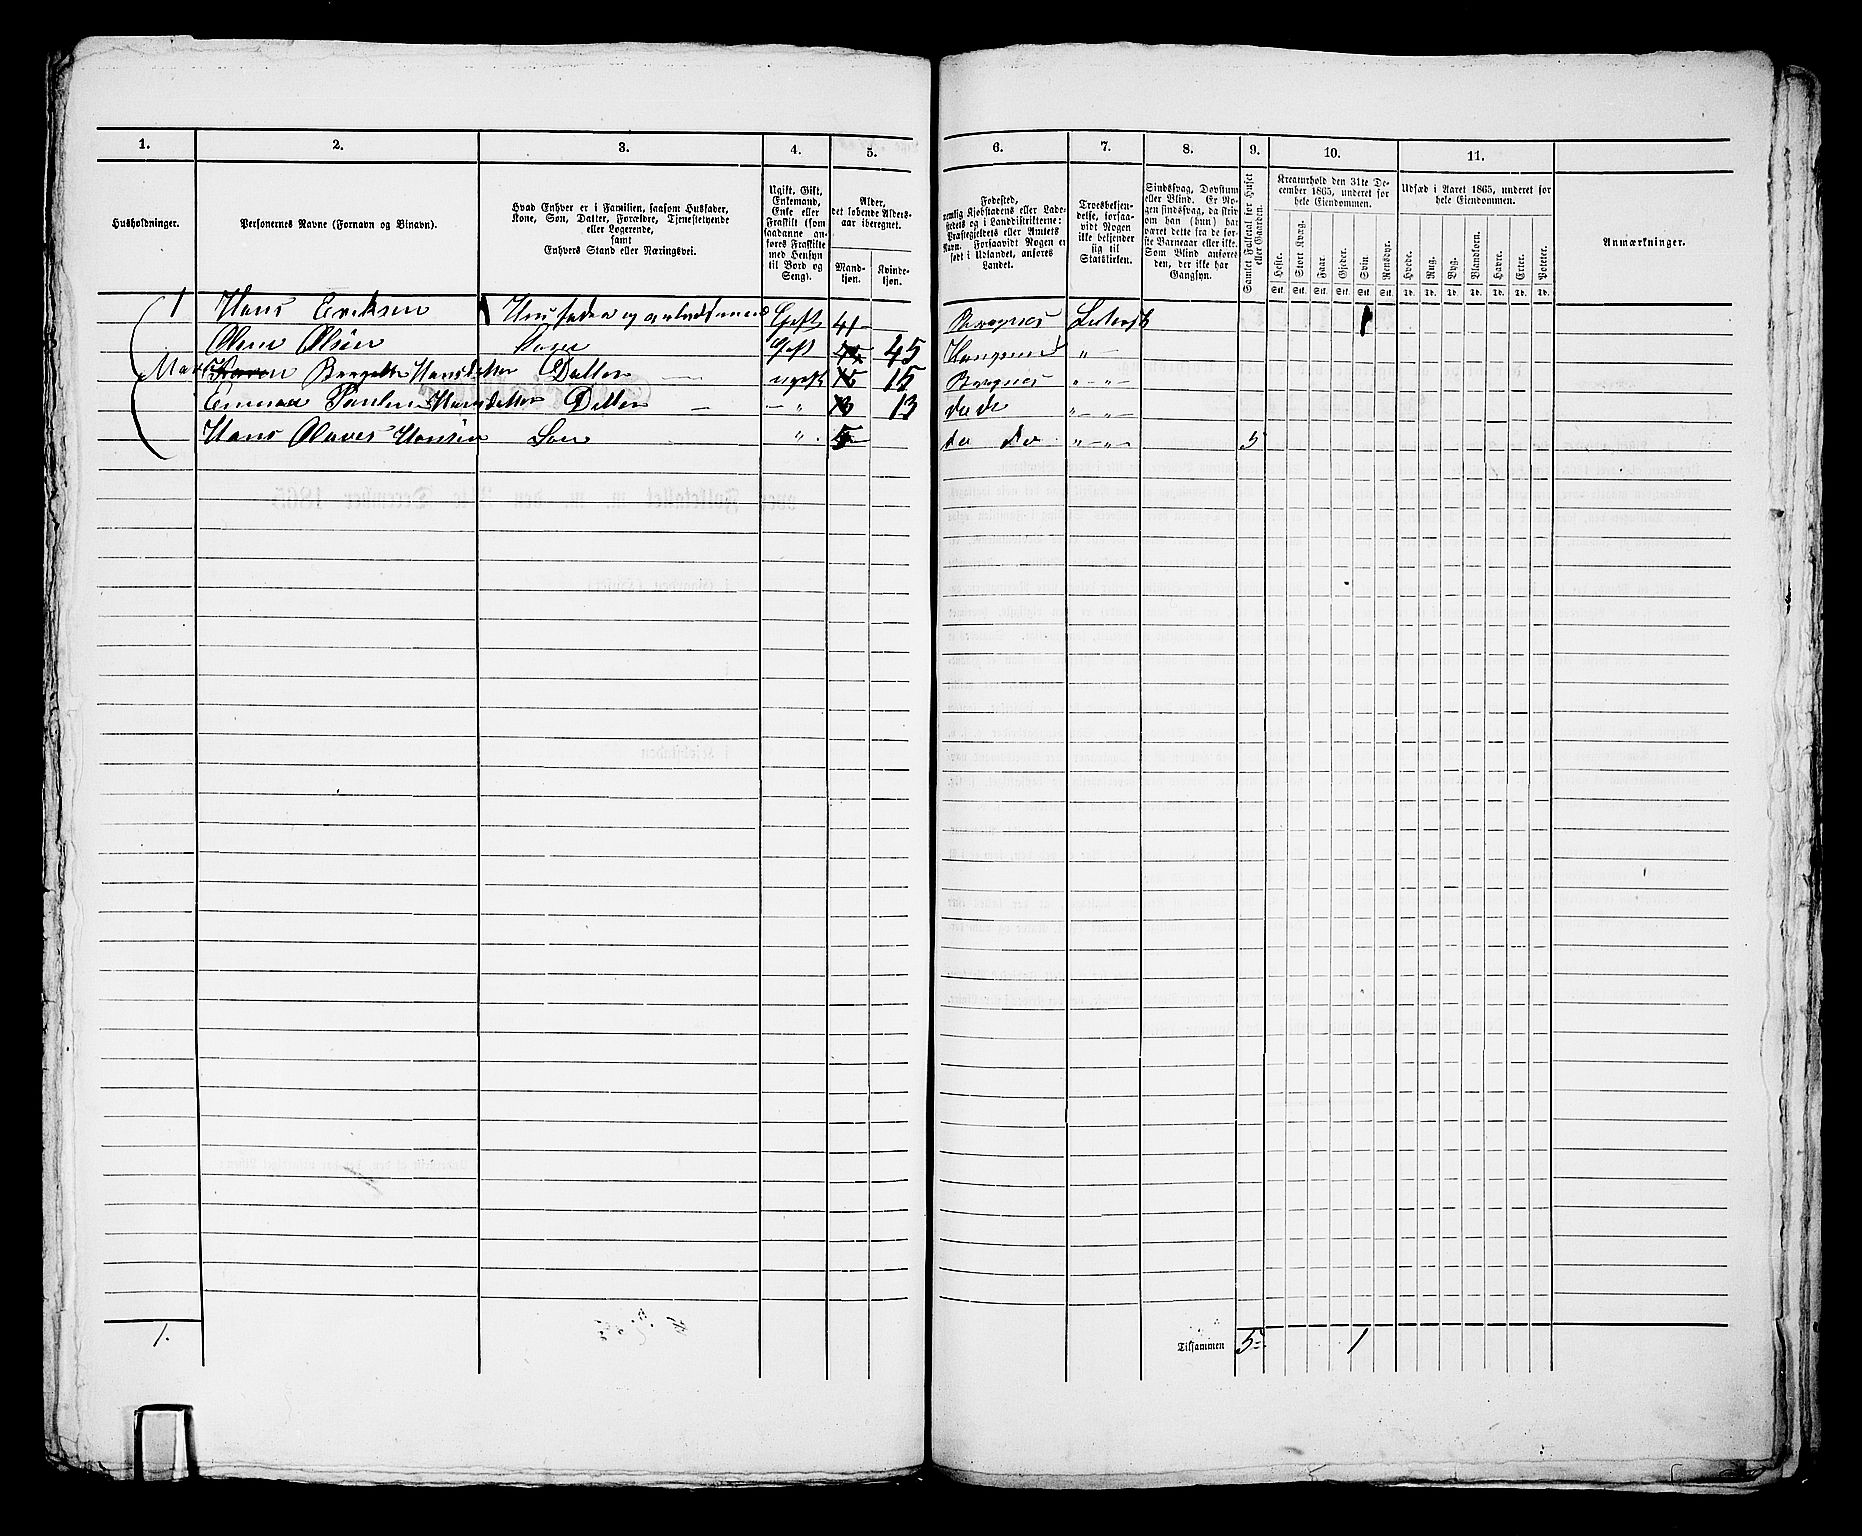 1. 2. 3. 4. 5. 6. 7. 8. 9. 10. 11.
Husholdninger.
Personernes Navne (Fornavn og Binavn).
Hvad Enhver er i Familien, saasom Husfader,
Kone, Søn, Datter, Forældre, Tjenestetyende
eller Logerende,
samt
Enhvers Stand eller Næringsvei.
Ugift, Gift,
Enkemand,
Enke eller
Fraskilt (som
saadanne an-
føres Fraskilte
med Hensyn
til Bord og
Seng).
Alder,
det løbende Alders-
aar iberegnet.
Mand-
kjøn.
Kvinde-
kjøn.
Fødested,
nemlig Kjøbstadens eller Lade-
stedets og i Landdistrikterne:
Præstegjeldets eller Amtets
Navn. Forsaavidt Nogen er
født i Udlandet, anføres
Landet.
Troesbekjen-
delse, forsaa-
vidt Nogen
ikke bekjender
sig til
Statskirken.
Sindssvag, Døvstum
eller Blind. Er No-
gen sindssvag, da skriv
om han (hun) har
været dette fra de før-
ste Barneaar eller ikke.
Som Blind anføres
den, der ikke har
Gangsyn.
Samlet Folketal for Huset
eller Gaarden.
Kreaturhold den 31te De-
cember 1865, underet for
hele Eiendommen.
Heste. Stort Kvæg. Faar. Gjeder. Sviin. Rensdyr.
Stk. Stk. Stk. Stk. Stk. Stk.
Udsæd i Aaret 1865, underet for
hele Eiendommen.
Hvede. Rug. Byg. Blandkorn. Havre. Erter. Poteter.
Td. Td. Td. Td. Td. Td. Td.
Anmærkninger.
1 Hans Eriksen Husfader og Gift 41 Bragnes 1
Olsen Kone Gift 45 " –
Maren Hansdatter Datter ugift 15 15 Bragnes " – " –
Hansdatter Datter – " 13 13 do do " – " –
Hans Olaves Hansen Søn " 5 do do " – " – 5
1. Tilsammen 5 1